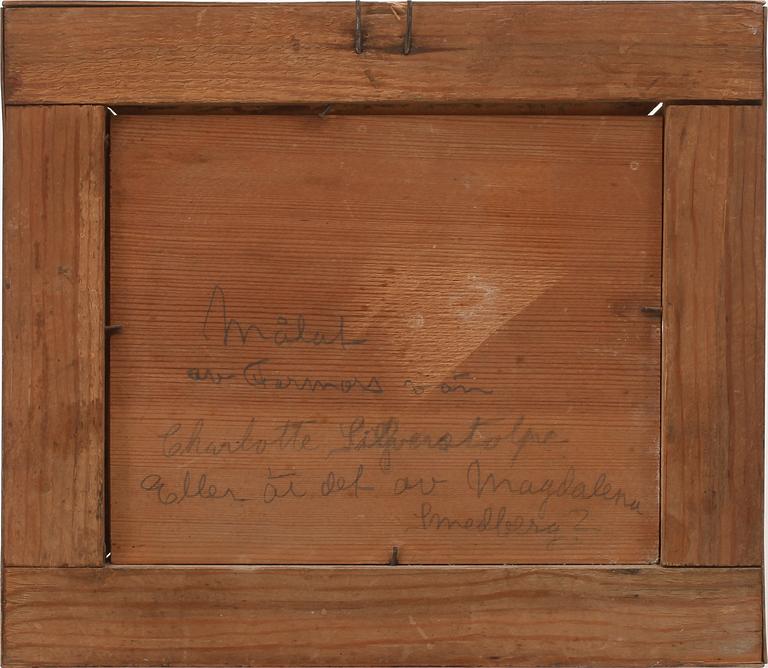 Målat
av Farmors vän
Charlotte Silfverstolpe
Eller är det av Magdalena
Smedberg?